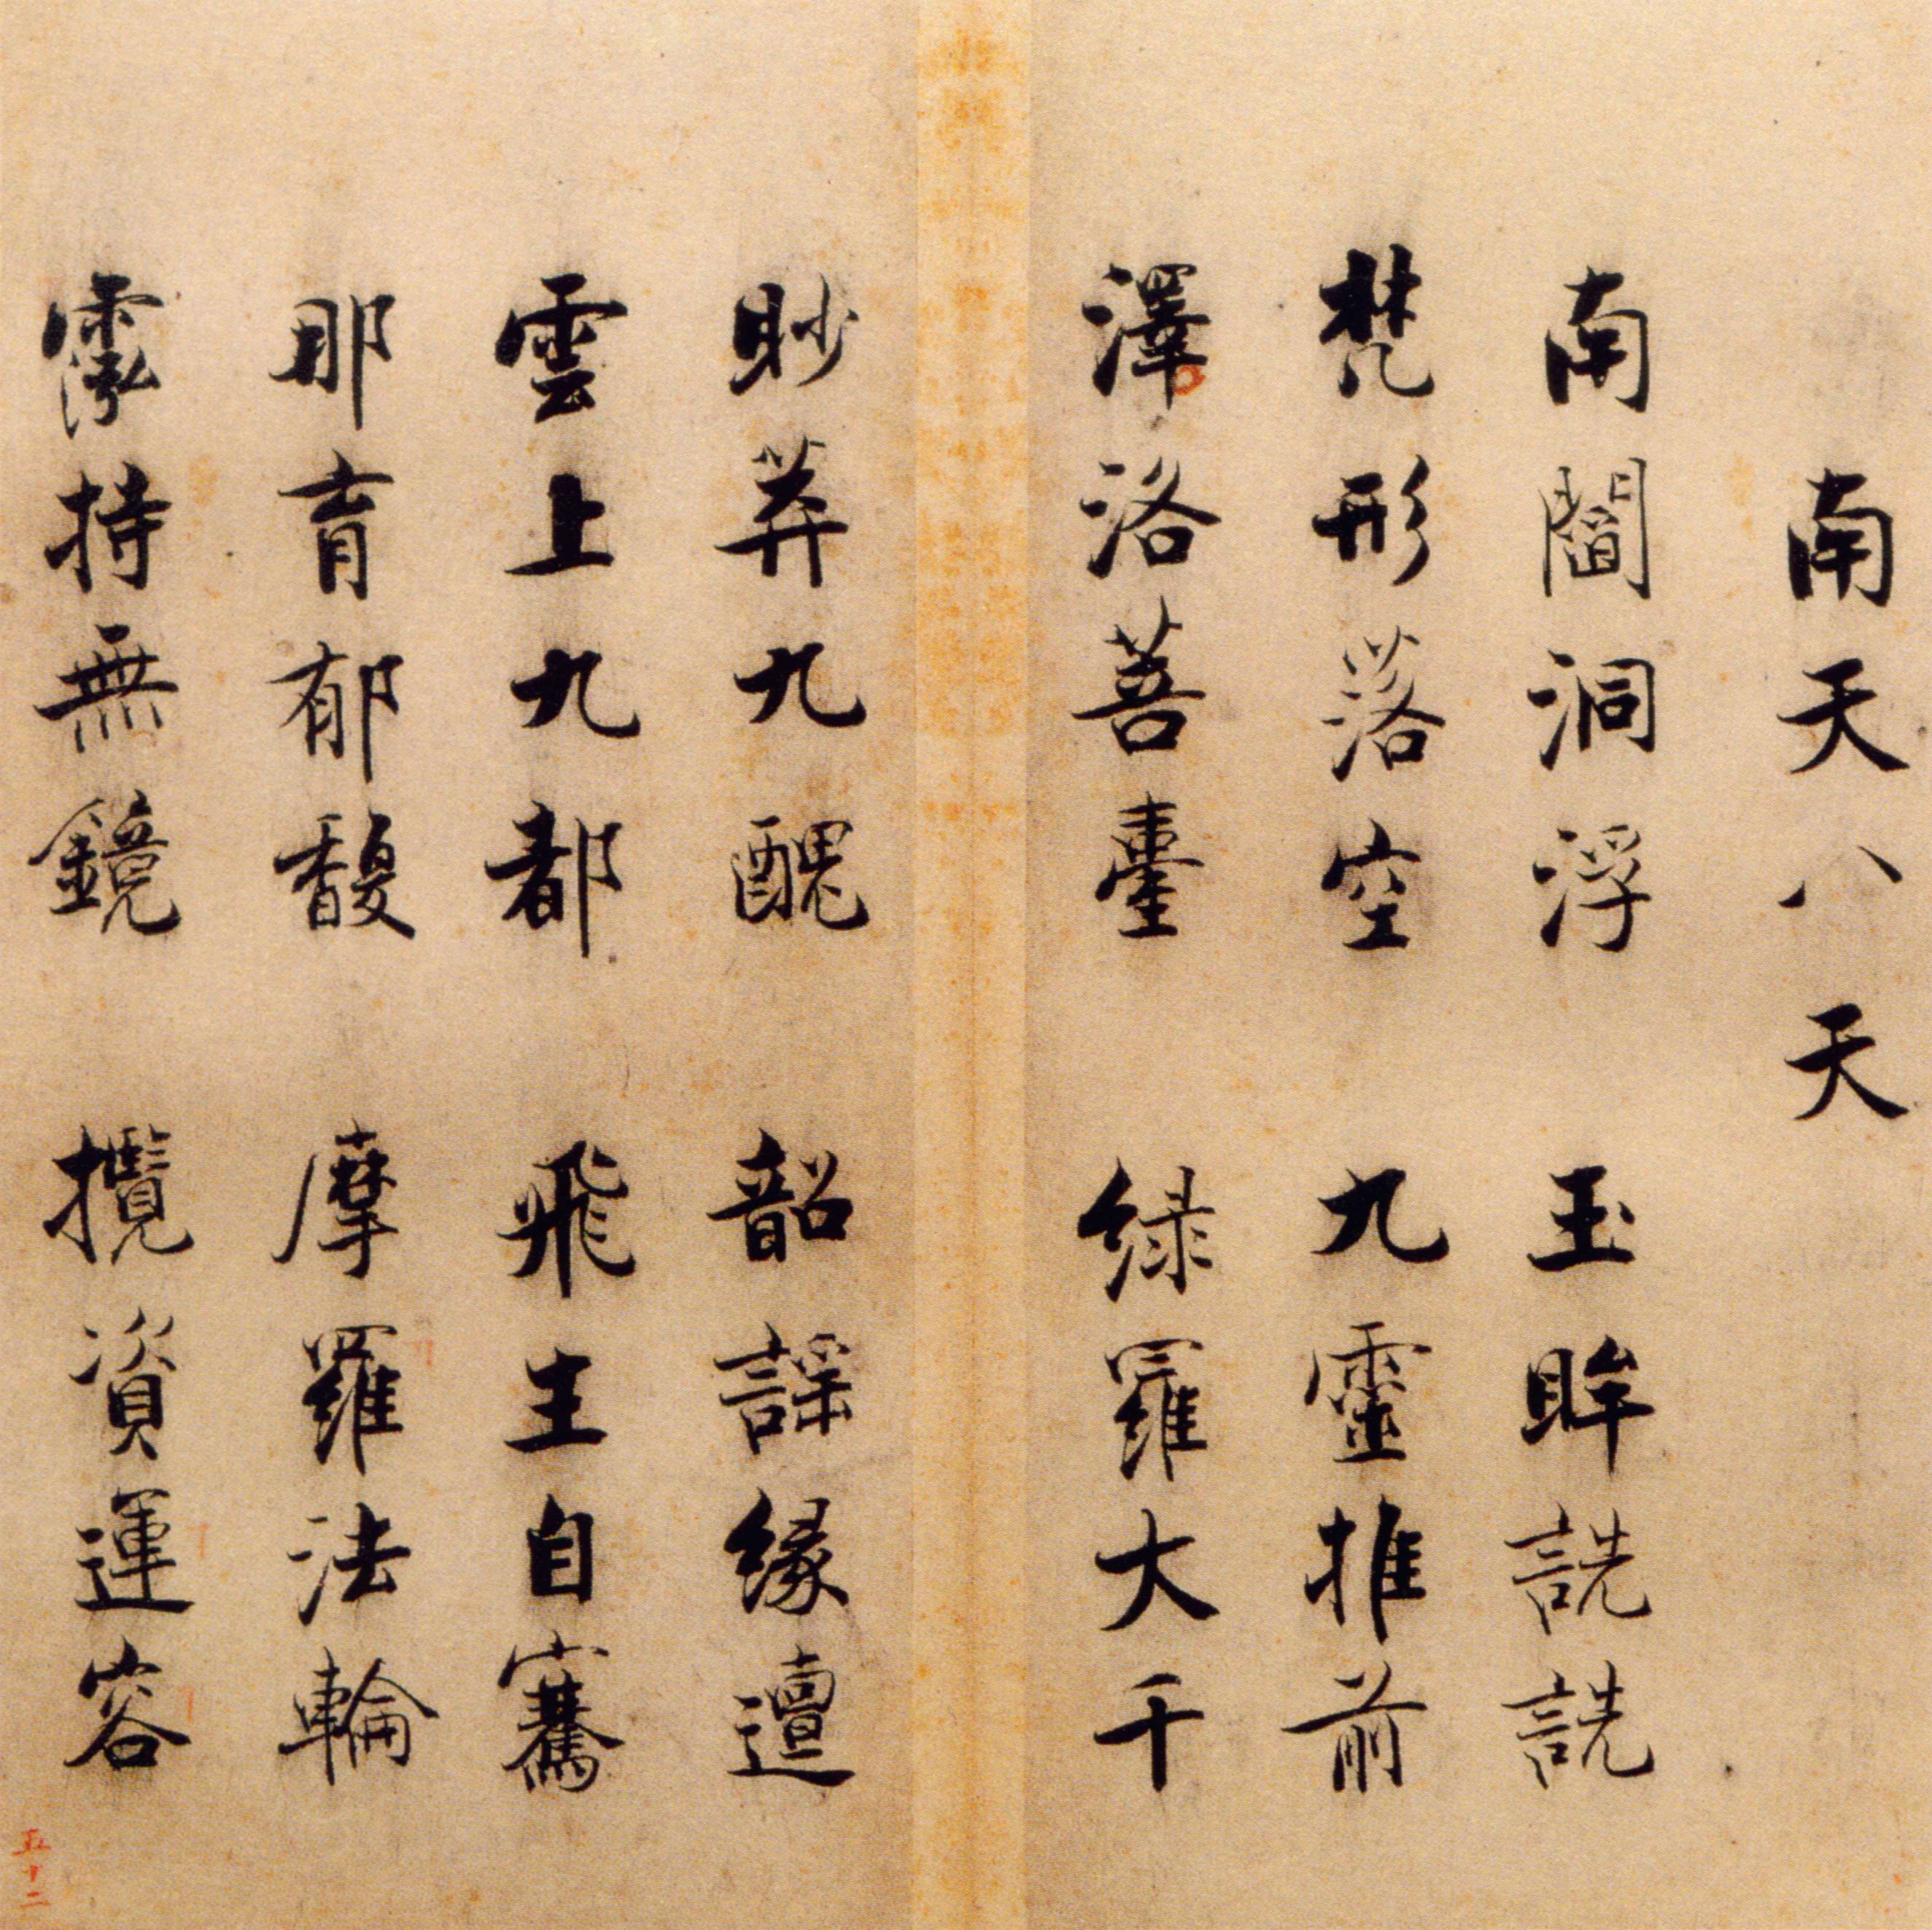 南天八天
南閻洞浮 玉眸詵詵
梵形落空 九靈推前
澤洛菩臺 綠羅大千
眇莽九醜 韶謠緣邅
雲上九都 飛主自騫
那育郁馥 摩羅法輪
霐持無鏡 攬資運容
五十二